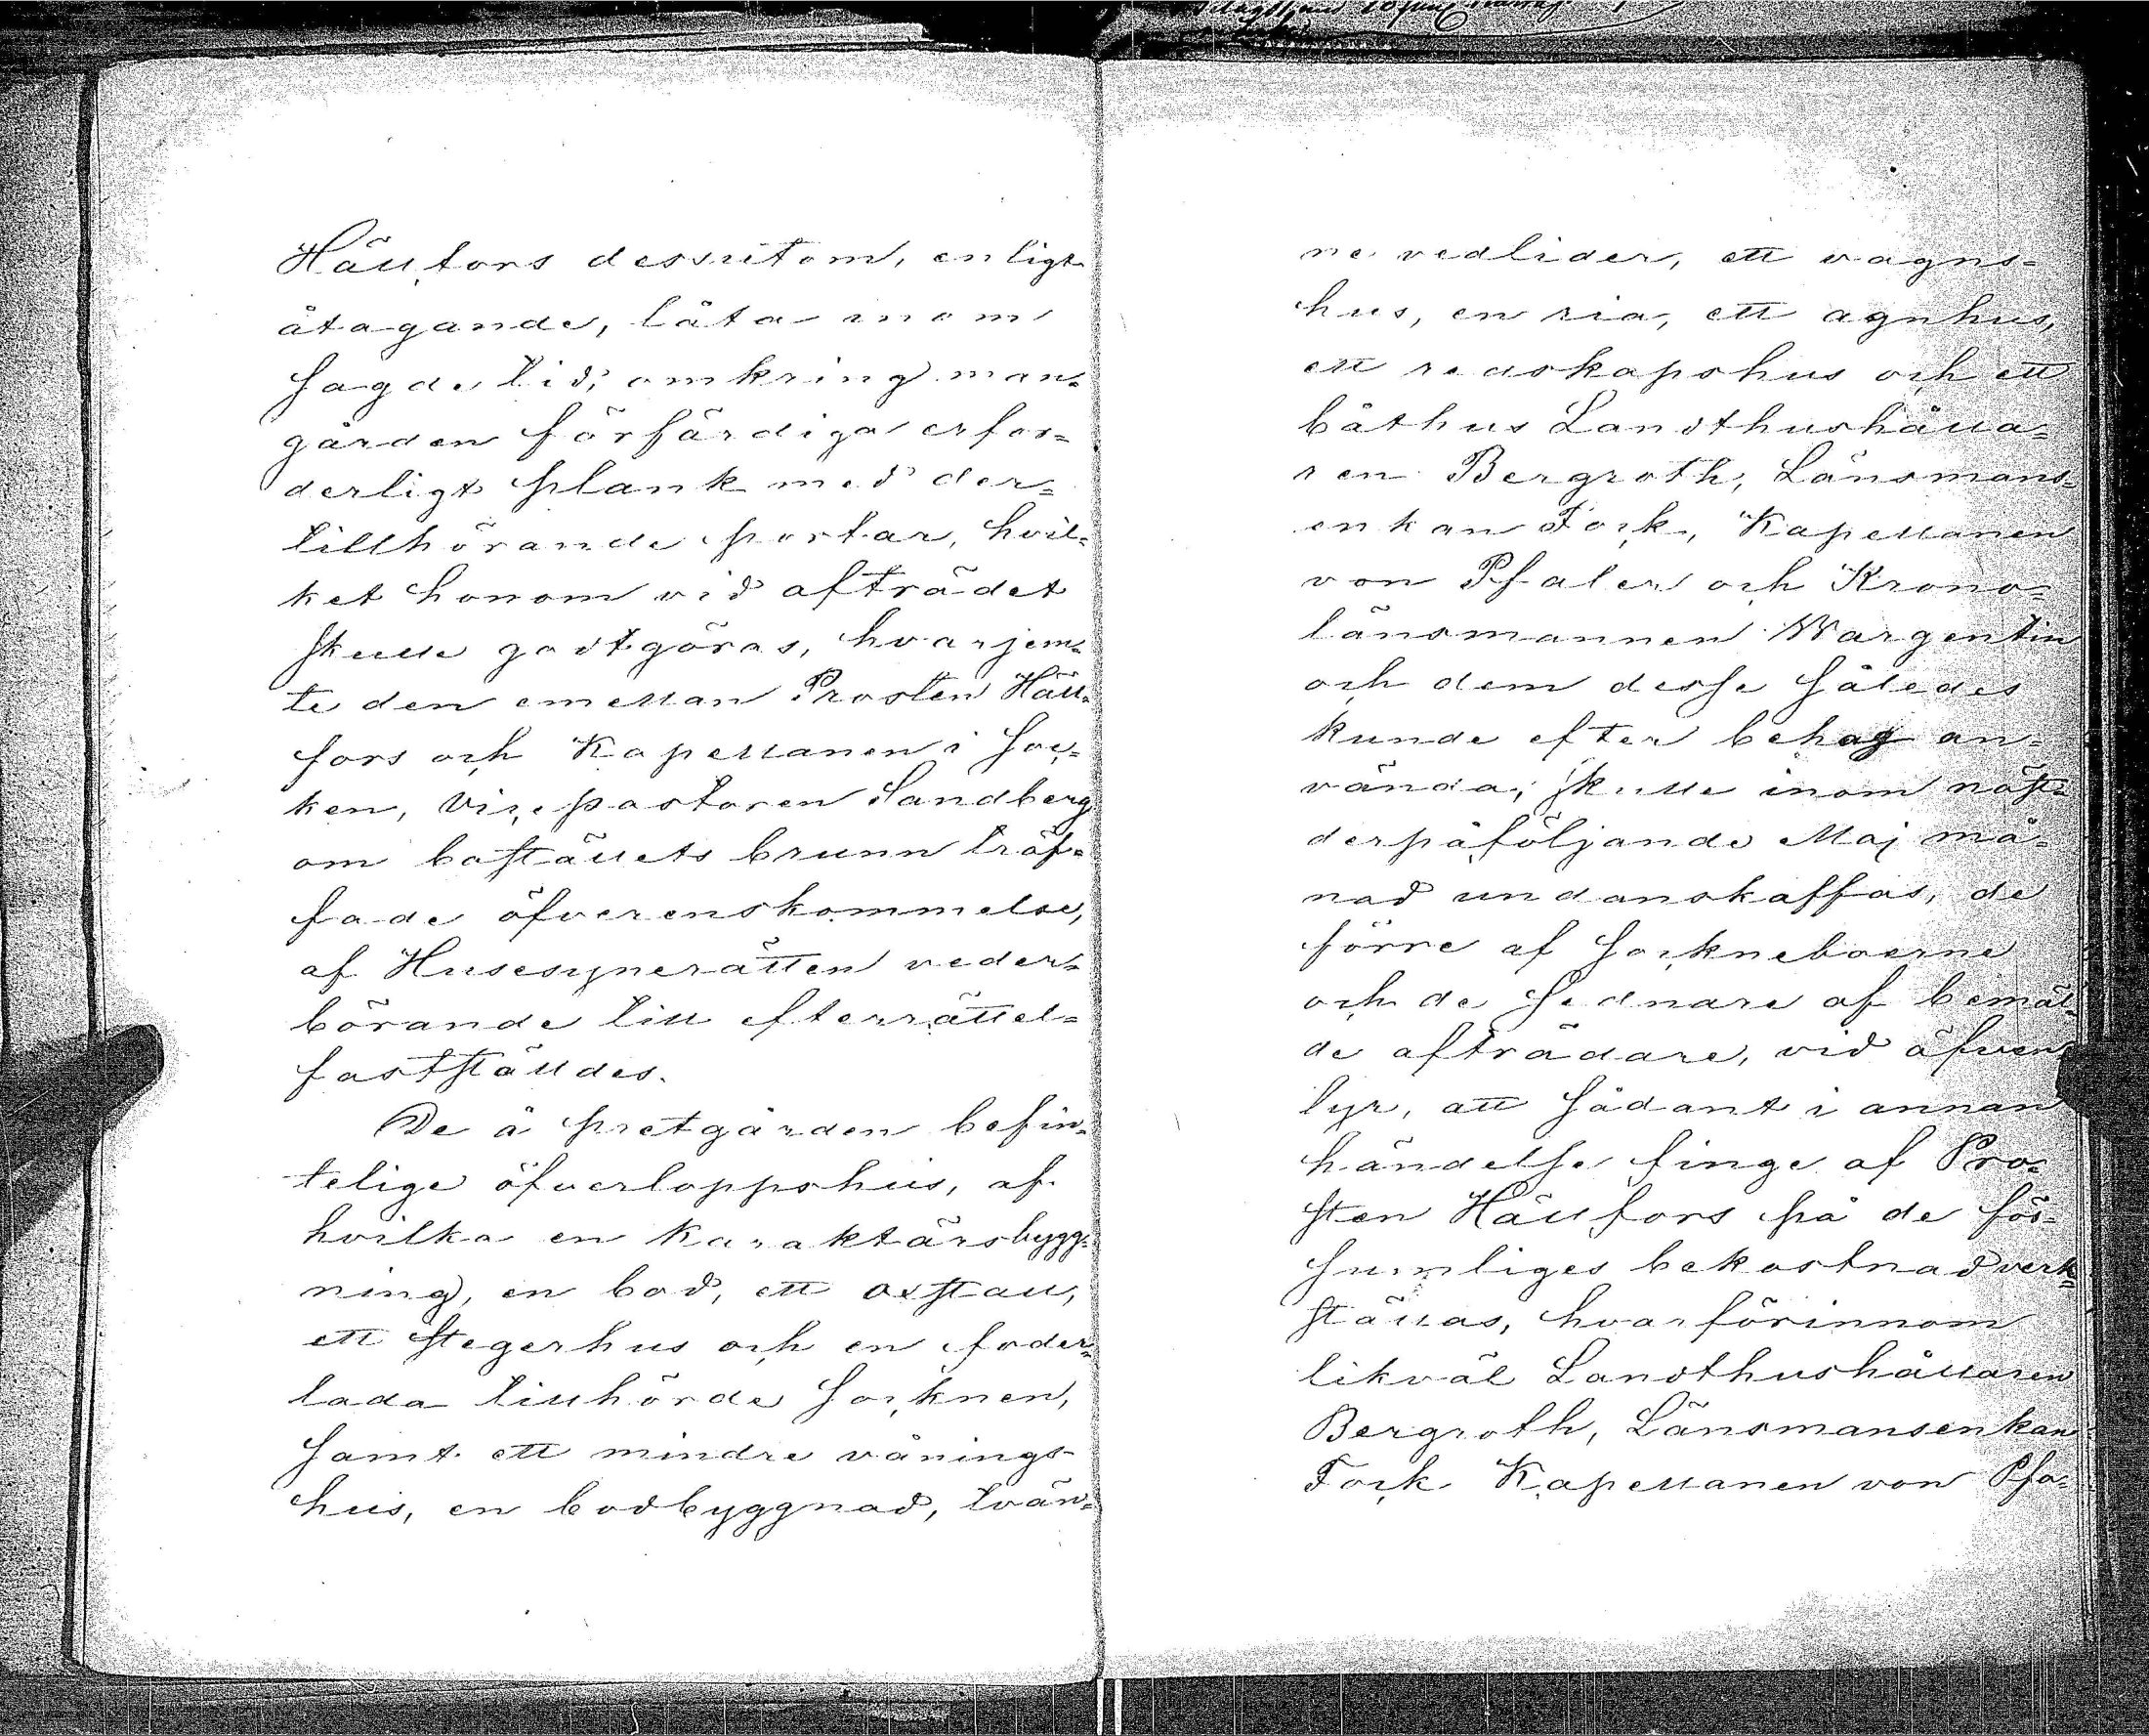 Hällfors dessutom, enligt
åtagande, låta inom
sagde tid, omkring man-
gården förfärdiga erfor-
derligt plank med der-
tillhörande portar, hvil-
ket honom vid afträdet
skulle godtgöras, hvarjem-
te den emellan Prosten Häll-
fors och Kapellanen i soc-
ken, Vicepastoren Sandberg
om boställets brunn träf-
fade öfverenskommelse,
af Husesynerätten veder-
börande till efterrättel-
fastställdes.
De å prestgården befin-
telige öfverloppshus, af
hvilka en karaktärsbygg-
ning, en bod, ett oxstall,
ett stegerhus och en foder-
lada tillhörde socknen,
samt ett mindre vånings-
hus, en bodbyggnad, tvän-
ne vedlider, ett vagns-
hus, en ria, ett agnhus,
ett redskapshus och ett
båthus Landthushålla-
ren Bergroth, Länsmans-
enkan Fock, Kapellanen
von Pfaler och Krono-
länsmannen Wargentin
och dem desse således
kunde efter behag an-
vända, skulle inom näst-
derpåföljande Maj må-
nad undanskaffas, de
förre af sockneboerne
och de sednare af bemäl-
de afträdare, vid äfven-
tyr, att sådant i annan
händelse finge af Pro-
sten Hällfors på de för-
sumliges bekostnad verk-
ställas, hvarförinnom
likväl Landthushållaren
Bergroth, Länsmansenkan
Fock Kapellanen von Pfa-